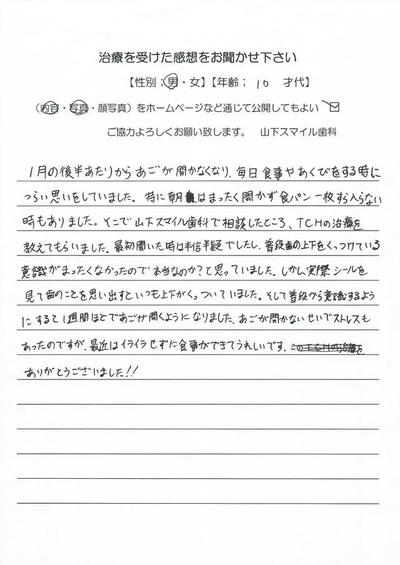 治療を受けた感想をお聞かせ下さい
【性別：男・女】【年齢； 10 才代】
（内容・写真・顔写真）をホームページなど通じて公開してもよい
ご協力よろしくお願い致します。 山下スマイル歯科
1月の後半あたりからあごが開かなくなり、毎日食事やあくびをする時に
つらい思いをしていました。特に朝はまったく開かず食パン一枚すら入らない
時もありました。そこで山下スマイル歯科で相談したところ、TCHの治療を
教えてもらいました。最初聞いた時は半信半疑でしたし、普段歯の上下をくっつけている
意識がまったくなかったので本当なのか？と思っていました。しかし実際シールを
見て歯のことを思い出すといつも上下がくっついていました。そして普段から意識するよう
にすると1週間ほどであごが開くようになりました。あごが開かないせいでストレスも
あったのですが、最近はイライラせずに食事ができてうれしいです。このTCHの治療を
ありがとうございました!!